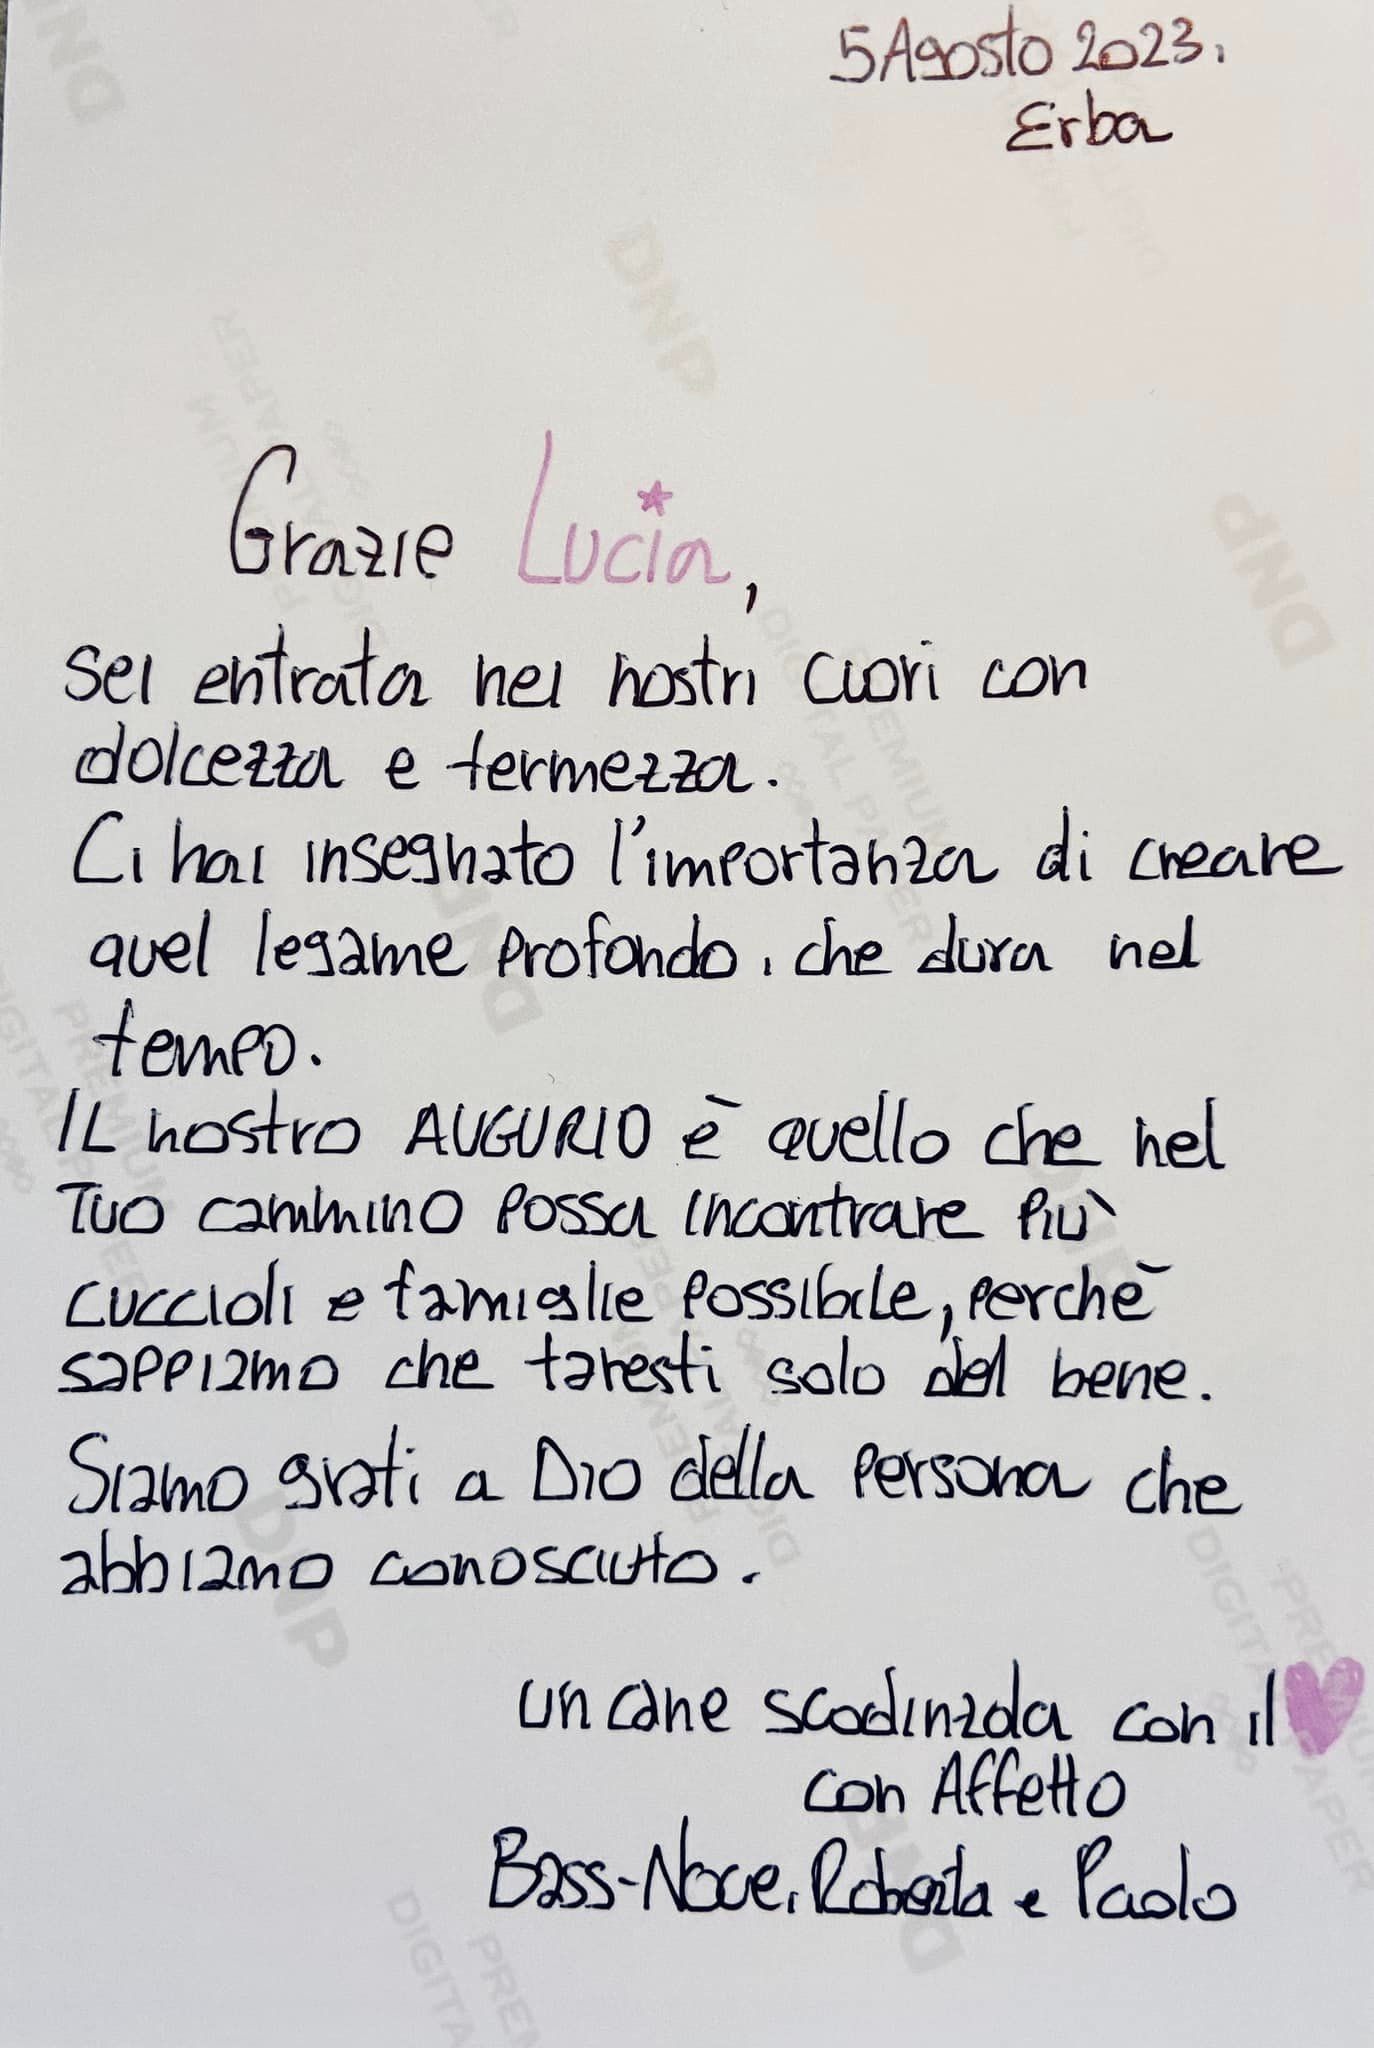 5 Agosto 2023.
Erba
Grazie Lucia,
sei entrata nei nostri cuori con
dolcezza e fermezza.
Ci hai insegnato l'importanza di creare
quel legame profondo, che dura nel
tempo.
IL nostro AUGURIO è quello che nel
TUO cammino possa incontrare più
cuccioli e famiglie possibile, perchè
sappiamo che faresti solo del bene.
Siamo grati a Dio della persona che
abbiamo conosciuto.
un cane scodinzola con il ♥
con Affetto
Bass-Noce, Roberta e Paolo
DNP
PREMIUM
DIGITAL PAPER